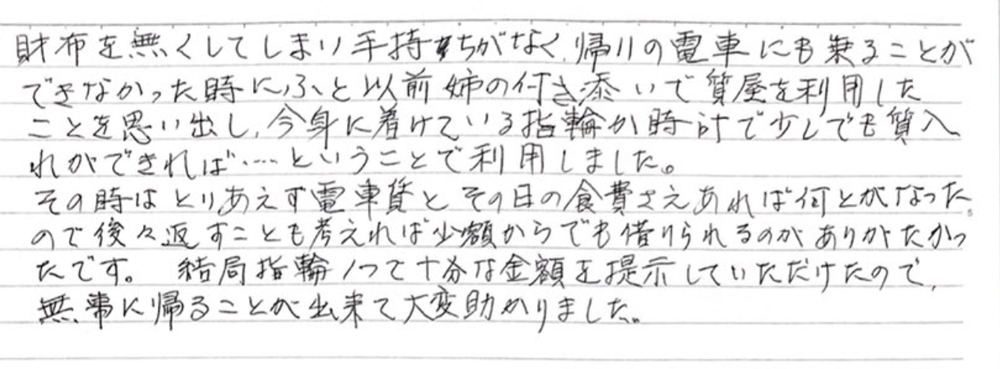 財布を無くしてしまい手持ちがなく、帰りの電車にも乗ることが
できなかった時に、ふと以前姉の付き添いで質屋を利用した
ことを思い出し、今身に着けている指輪か時計で少しでも質入
れができれば‥‥ということで利用しました。
その時はとりあえず電車賃とその日の食費さえあれば何とかなった
ので後々返すことも考えれば少額からでも借りられるのがありがたかっ
たです。 結局指輪1つで十分な金額を提示していただけたので、
無事に帰ることが出来て大変助かりました。